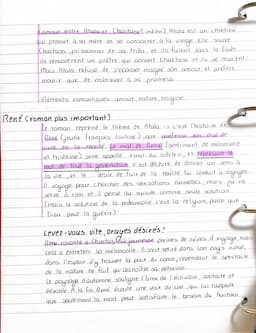 Roman entre Atala et Chactas (indien) Atala est un chrétien
qui promet à sa mère de se consacrer à la vierge. Elle sauve
Chactas, prisonnier de sa tribu, et ils fuient dans la forêt
ils rencontrent un prêtre qui convert Chactas et ils se marient
Mais Atala refuse de s'opposer malgré son amour, et préfère
mourir que de manquer à sa promesse.
éléments romantiques: amour, nature, religion.
René (roman plus important)
Le roman reprend le thème de Atala : c'est l'histoire de
René (jeune français civilisé) qui
vivre en la société. Le mal de René (sentiment de mélancolie
et tristesse) sera appelé «mal du siècle», et représente le
mal de tout la génération. Il est déchiré de donner un sens à
la vie, et le désir de fuir de la réalité lui conduit à voyager.
Il voyage pour chercher des sensations nouvelles, mais ça ne
sert à rien et il pense au suicide comme seule solution
(mais la solution de la mélancolie c'est la religion, parce que
Dieu peut la guérir)
Levez-vous vite, orages désirés!
René raconte à Chactas sa jeunesse pleines de rêves. Il voyage, mais
cela a entretenu sa mélancolie. Il s'est retiré dans son pays natal,
dans l'espoir d'y trouver la paix du cœur, cependant le spectacle
de la nature ne fait qu'accroître sa détresse.
Le paysage d'automne souligne l'âme de l'écrivain, solitaire et
désolée. À la fin René entend une voix du ciel, qui lui rappelle
que seulement la mort peut satisfaire le besoin du bonheur.